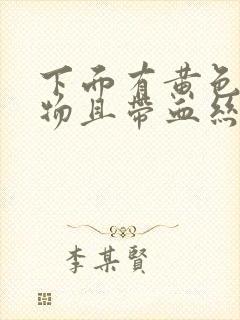 下面有黄色
物且带血絲
李某賢